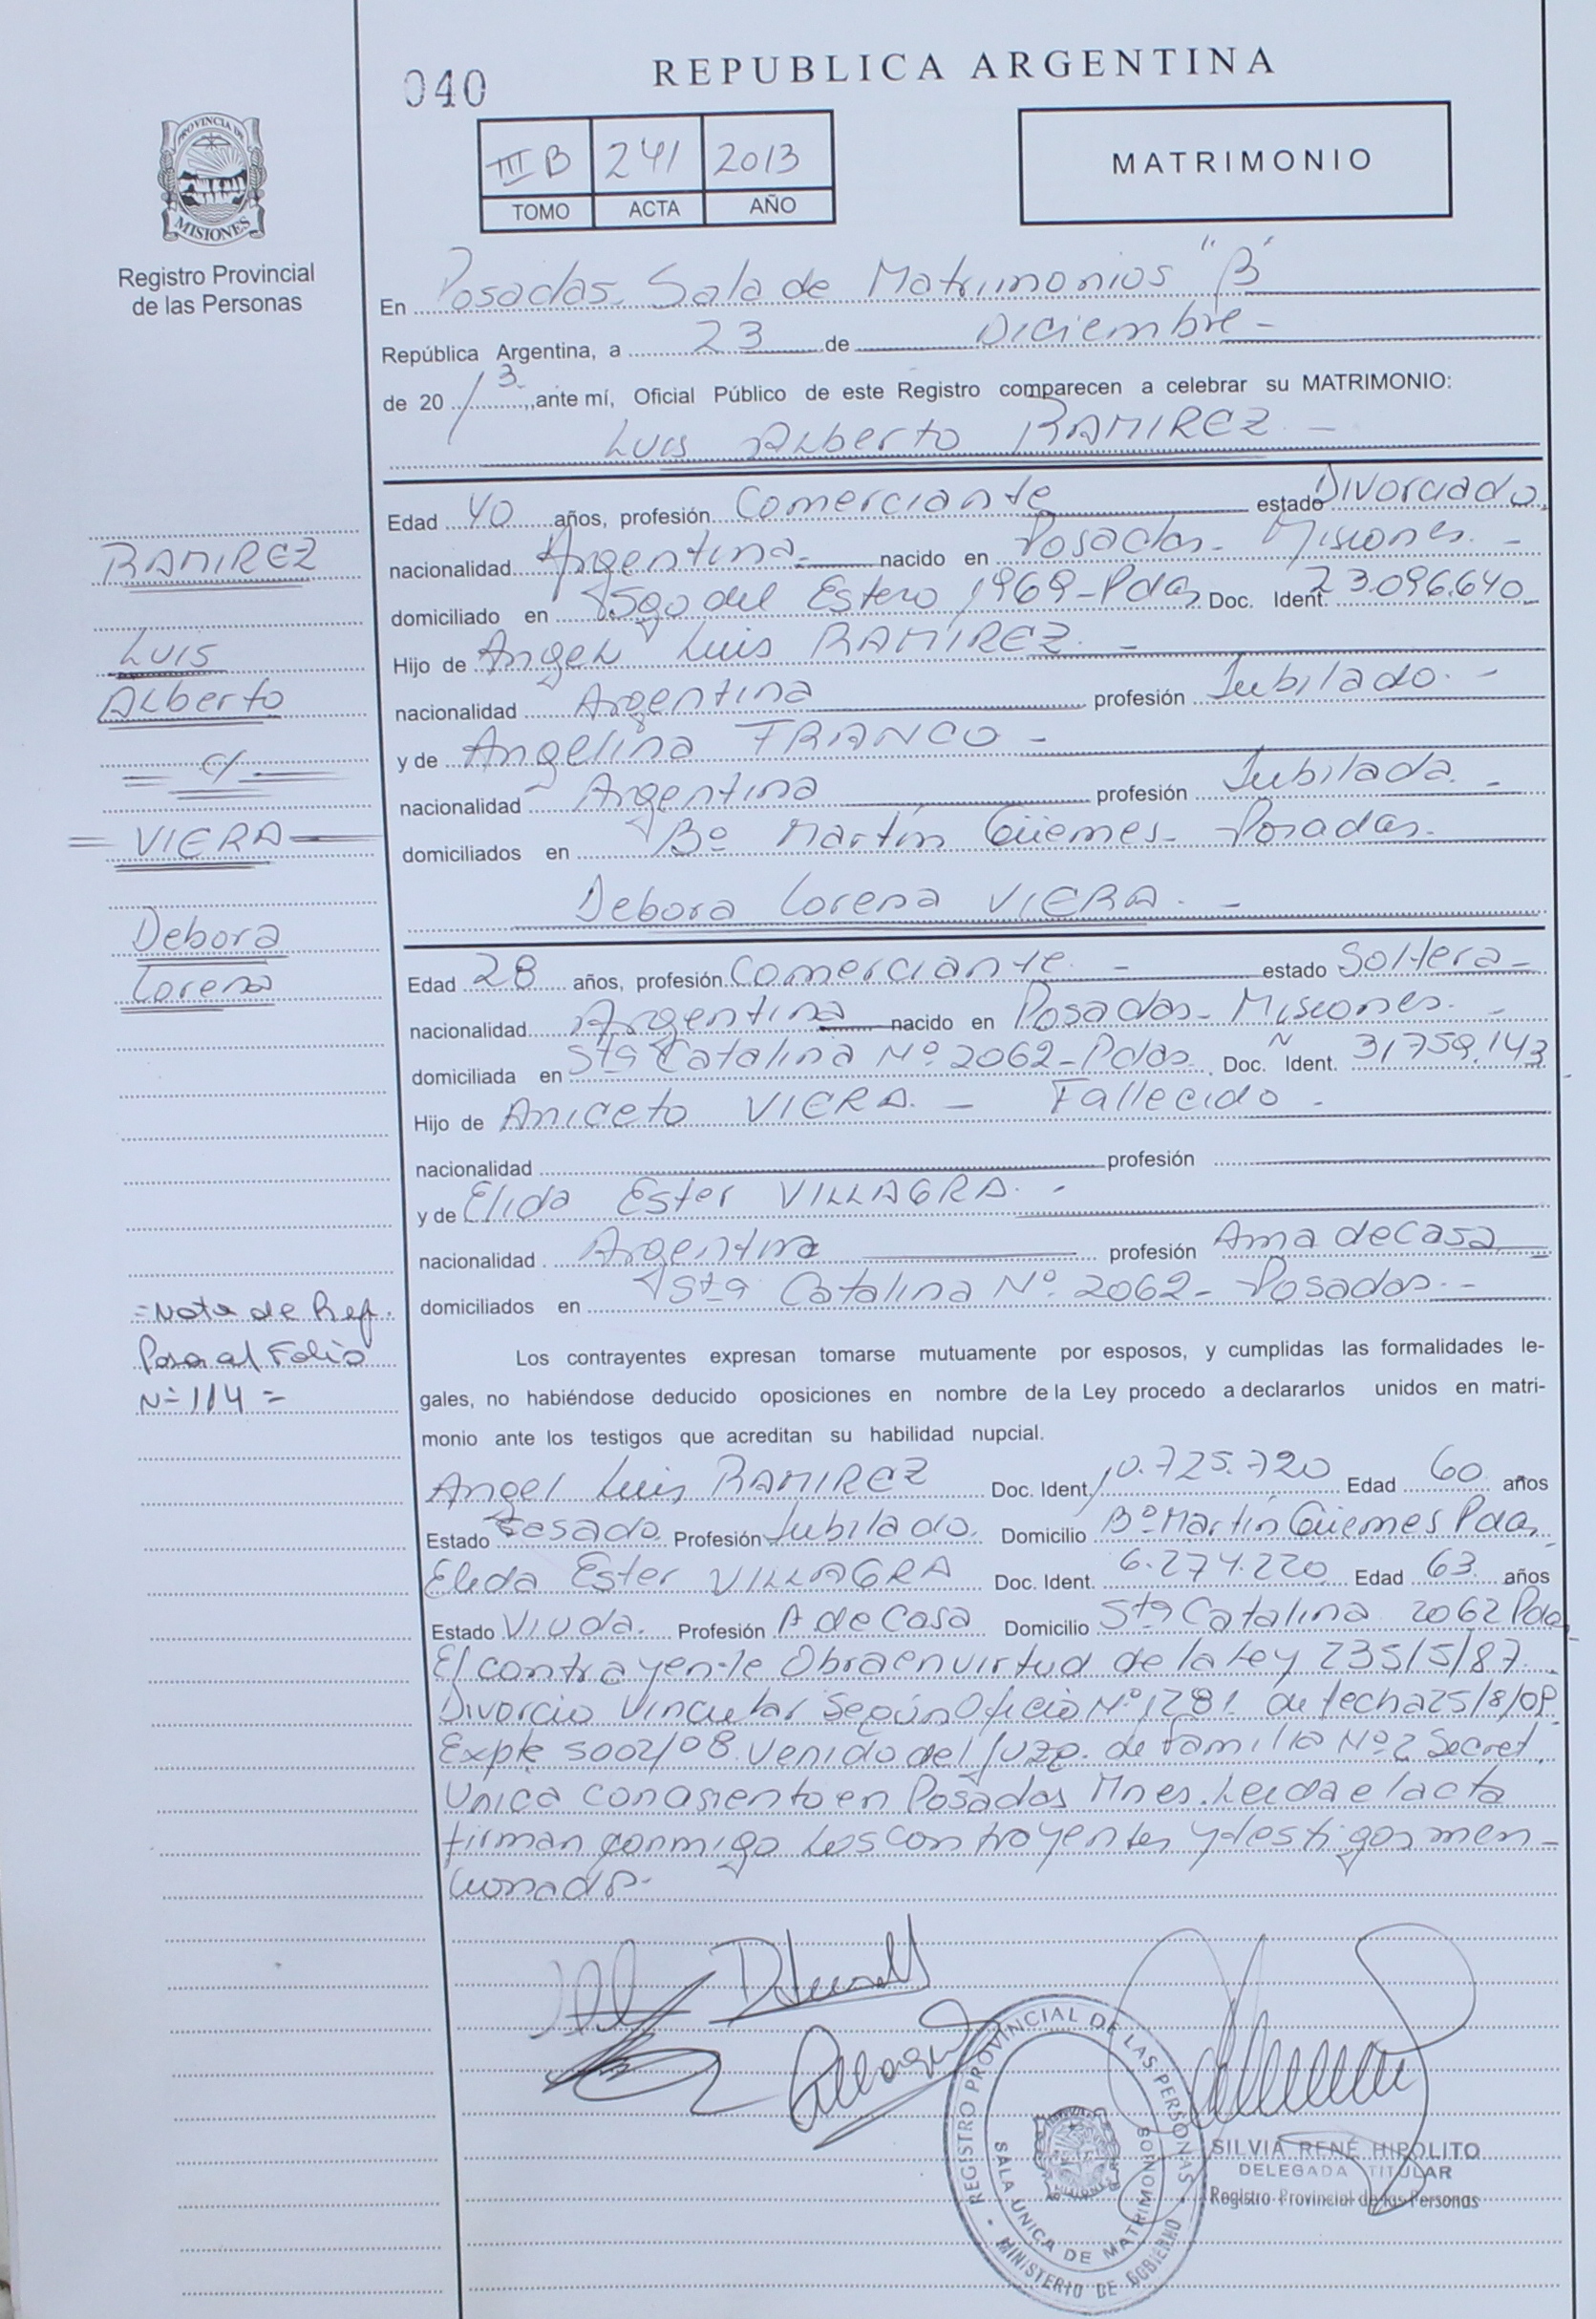 040
REPUBLICA ARGENTINA
III B 241 2013
TOMO ACTA AÑO
MATRIMONIO
PROVINCIA DE MISIONES
Registro Provincial
de las Personas
En Posadas. Sala de Matrimonios "B"
República Argentina, a 23 de Diciembre -
de 2013, ante mí, Oficial Público de este Registro comparecen a celebrar su MATRIMONIO:
Luis Alberto RAMIREZ. -
Edad 40 años, profesión Comerciante estado Divorciado.
nacionalidad Argentina. nacido en Posadas - Misiones. -
domiciliado en Sgo del Estero 1969 - Pdas Doc. Ident. 23.096.640
Hijo de Angel Luis RAMIREZ. -
nacionalidad Argentina profesión Jubilado. -
y de Angelina FRANCO -
nacionalidad Argentina profesión Jubilada. -
domiciliados en Bº Martín Güemes - Posadas.
Debora Lorena VIERA. -
Edad 28 años, profesión Comerciante. - estado Soltera -
nacionalidad Argentina nacido en Posadas - Misiones. -
domiciliada en Sta Catalina Nº 2062 - Pdas. Doc. Ident. 31.759.143
Hijo de Aniceto VIERA. - Fallecido -
nacionalidad profesión
y de Elida Ester VILLAGRA. -
nacionalidad Argentina profesión Ama de Casa
domiciliados en Sta Catalina Nº 2062 - Posadas. -
Los contrayentes expresan tomarse mutuamente por esposos, y cumplidas las formalidades le-
gales, no habiéndose deducido oposiciones en nombre de la Ley procedo a declararlos unidos en matri-
monio ante los testigos que acreditan su habilidad nupcial.
Angel Luis RAMIREZ Doc. Ident. 10.725.720 Edad 60 años
Estado Casado. Profesión Jubilado. Domicilio Bº Martín Güemes Pdas
Elida Ester VILLAGRA Doc. Ident. 6.274.220 Edad 63 años
Estado Viuda. Profesión A de Casa Domicilio Sta Catalina 2062 Pdas
El contrayente Obra en virtud de la Ley 23515/87.
Divorcio Vincular Según Oficio Nº 1281 de fecha 25/8/09.
Expte 5002/08. Venido del Juzg. de Familia Nº 2 Secret.
Unica con asiento en Posadas Mnes. Leida el acta
firman conmigo los contrayentes y testigos men-
cionados.
RAMIREZ
Luis
Alberto
= c/ =
= VIERA =
Debora
Lorena
= Nota de Ref.
Pasa al Folio
Nº 114 =
REGISTRO PROVINCIAL DE LAS PERSONAS
MINISTERIO DE GOBIERNO
SALA UNICA DE MATRIMONIOS
SILVIA RENÉ HIPOLITO
DELEGADA TITULAR
Registro Provincial de las Personas